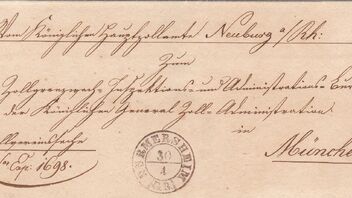 Vom Königlichen Hauptzollamte Neuburg a/Rh:
Zum
Zollgrenzwach-Inspektions- und Administrations-
der Königlichen General Zoll-Administration
in
Münche
Exp: 1698.
GERMERSHEIM
30
4